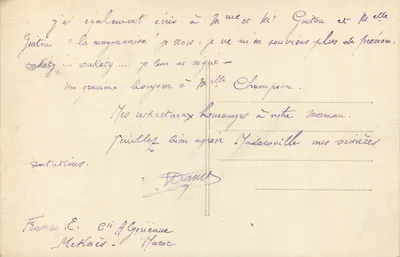 j'ai également écris à Mme et Mr Guitou et Melle
Guitou "la mayonnaise" je crois. je ne m'en souviens plus de prénom.
je leur ai
un gracieux bonjour à Melle Champion.
Mes respectueux hommages à votre maman.
Veuillez bien agréer Mademoiselle mes sincères
salutations.
Franco. E. Cie Algérienne
Meknès - Maroc